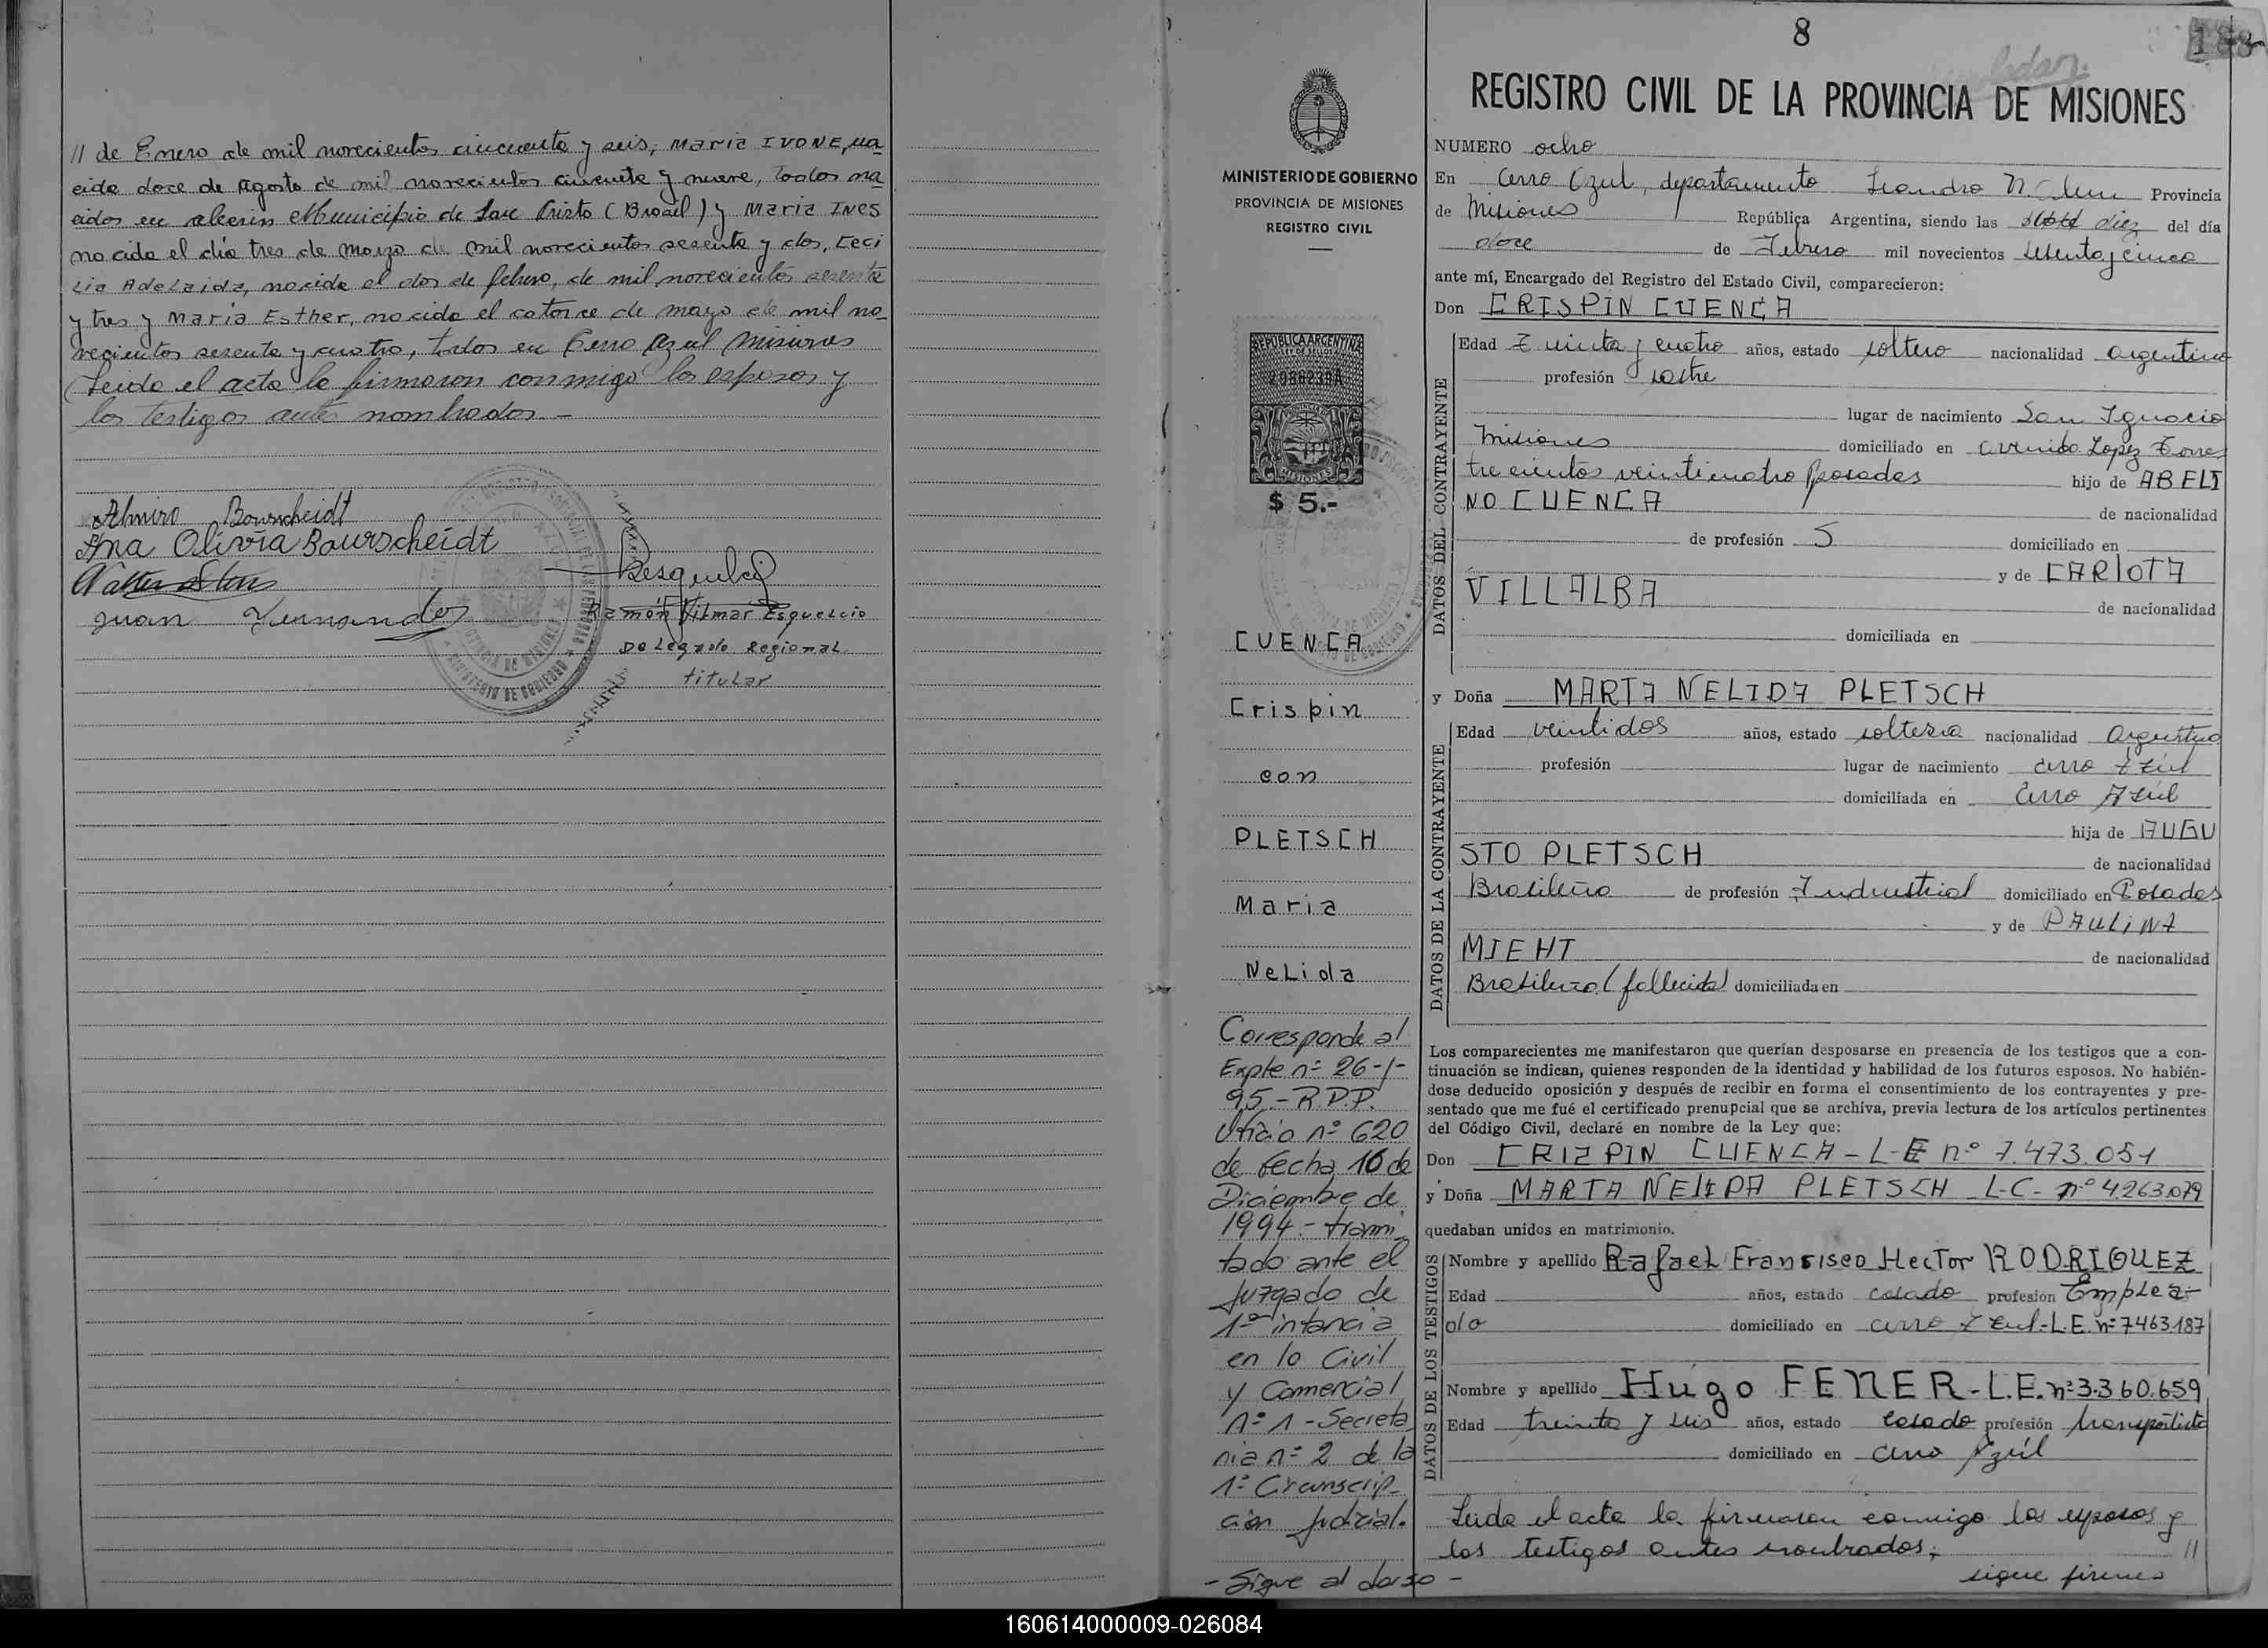 11 de Enero de mil novecientos cincuenta y seis, Maria IVONE, na
cida doce de Agosto de mil novecientos cincuenta y nueve, todos na
cidos en Municipio de Cristo (Brasil) y Maria INES
nacida el día tres de marzo de mil novecientos sesenta y dos, Ceci
Lia Adelaida, nacida el dos de febrero, de mil novecientos sesenta
y tres y Maria Esther, nacida el catorce de mayo de mil no
vecientos sesenta y cuatro, todos en Cerro Azul Misiones
Leida el acta la firmaron conmigo los esposos y
los testigos antes nombrados -
Almiro Bourscheidt
Ana Olivia Bourscheidt
Juan Fernandez
Ramón Vilmar Esquercio
Delegado Regional
titular
8
REGISTRO CIVIL DE LA PROVINCIA DE MISIONES
MINISTERIO DE GOBIERNO
PROVINCIA DE MISIONES
REGISTRO CIVIL
REPUBLICA ARGENTINA
LEY DE SELLOS
MISIONES
$ 5.-
CUENCA
Crispin
con
PLETSCH
Maria
NeLida
Corresponde al
Expte nº 26-1-
95.- R.P.P.
Oficio nº 620
de fecha 16 de
Diciembre de
1994 - trami
tado ante el
Juzgado de
1ª intancia
en lo Civil
y Comercial
nº 1 - Secreta
ria nº 2 de la
1ª Circunscrip-
ción judicial.
- Sigue al dorso -
NUMERO ocho
En Cerro Azul, departamento Leandro N. Alem Provincia
de Misiones República Argentina, siendo las diez del día
doce de Febrero mil novecientos setenta y cinco
ante mí, Encargado del Registro del Estado Civil, comparecieron:
Don CRISPIN CUENCA
DATOS DEL CONTRAYENTE
Edad Treinta y cuatro años, estado soltero nacionalidad argentino
profesión sastre
lugar de nacimiento San Ignacio
Misiones domiciliado en avenida Lopez Torres
trecientos veinticuatro Posadas hijo de ABELI
NO CUENCA de nacionalidad
de profesión domiciliado en
y de CARLOTA
VILLALBA de nacionalidad
domiciliada en
y Doña MARTA NELIDA PLETSCH
DATOS DE LA CONTRAYENTE
Edad veintidos años, estado soltera nacionalidad Argentina
profesión lugar de nacimiento Cerro Azul
domiciliada en Cerro Azul
hija de AUGU
STO PLETSCH de nacionalidad
Brasileña de profesión Industrial domiciliado en Posadas
y de PAULINA
MIEHT de nacionalidad
Brasileña (fallecida) domiciliada en
Los comparecientes me manifestaron que querían desposarse en presencia de los testigos que a con-
tinuación se indican, quienes responden de la identidad y habilidad de los futuros esposos. No habién-
dose deducido oposición y después de recibir en forma el consentimiento de los contrayentes y pre-
sentado que me fué el certificado prenupcial que se archiva, previa lectura de los artículos pertinentes
del Código Civil, declaré en nombre de la Ley que:
Don CRIZPIN CUENCA - L-E nº 7.473.051
y Doña MARTA NELIDA PLETSCH L-C- nº 4.263.079
quedaban unidos en matrimonio.
DATOS DE LOS TESTIGOS
Nombre y apellido Rafael Fransisco Hector RODRIGUEZ
Edad años, estado casado profesion Emplea-
do domiciliado en Cerro Azul-L.E. nº 7463.187
Nombre y apellido Hugo FENER - L.E. nº 3.360.659
Edad treinta y seis años, estado casado profesión transportista
domiciliado en Cerro Azúl
Leida el acta la firmaron conmigo los esposos y
los testigos antes nombrados; //
sigue firmas
160614000009-026084